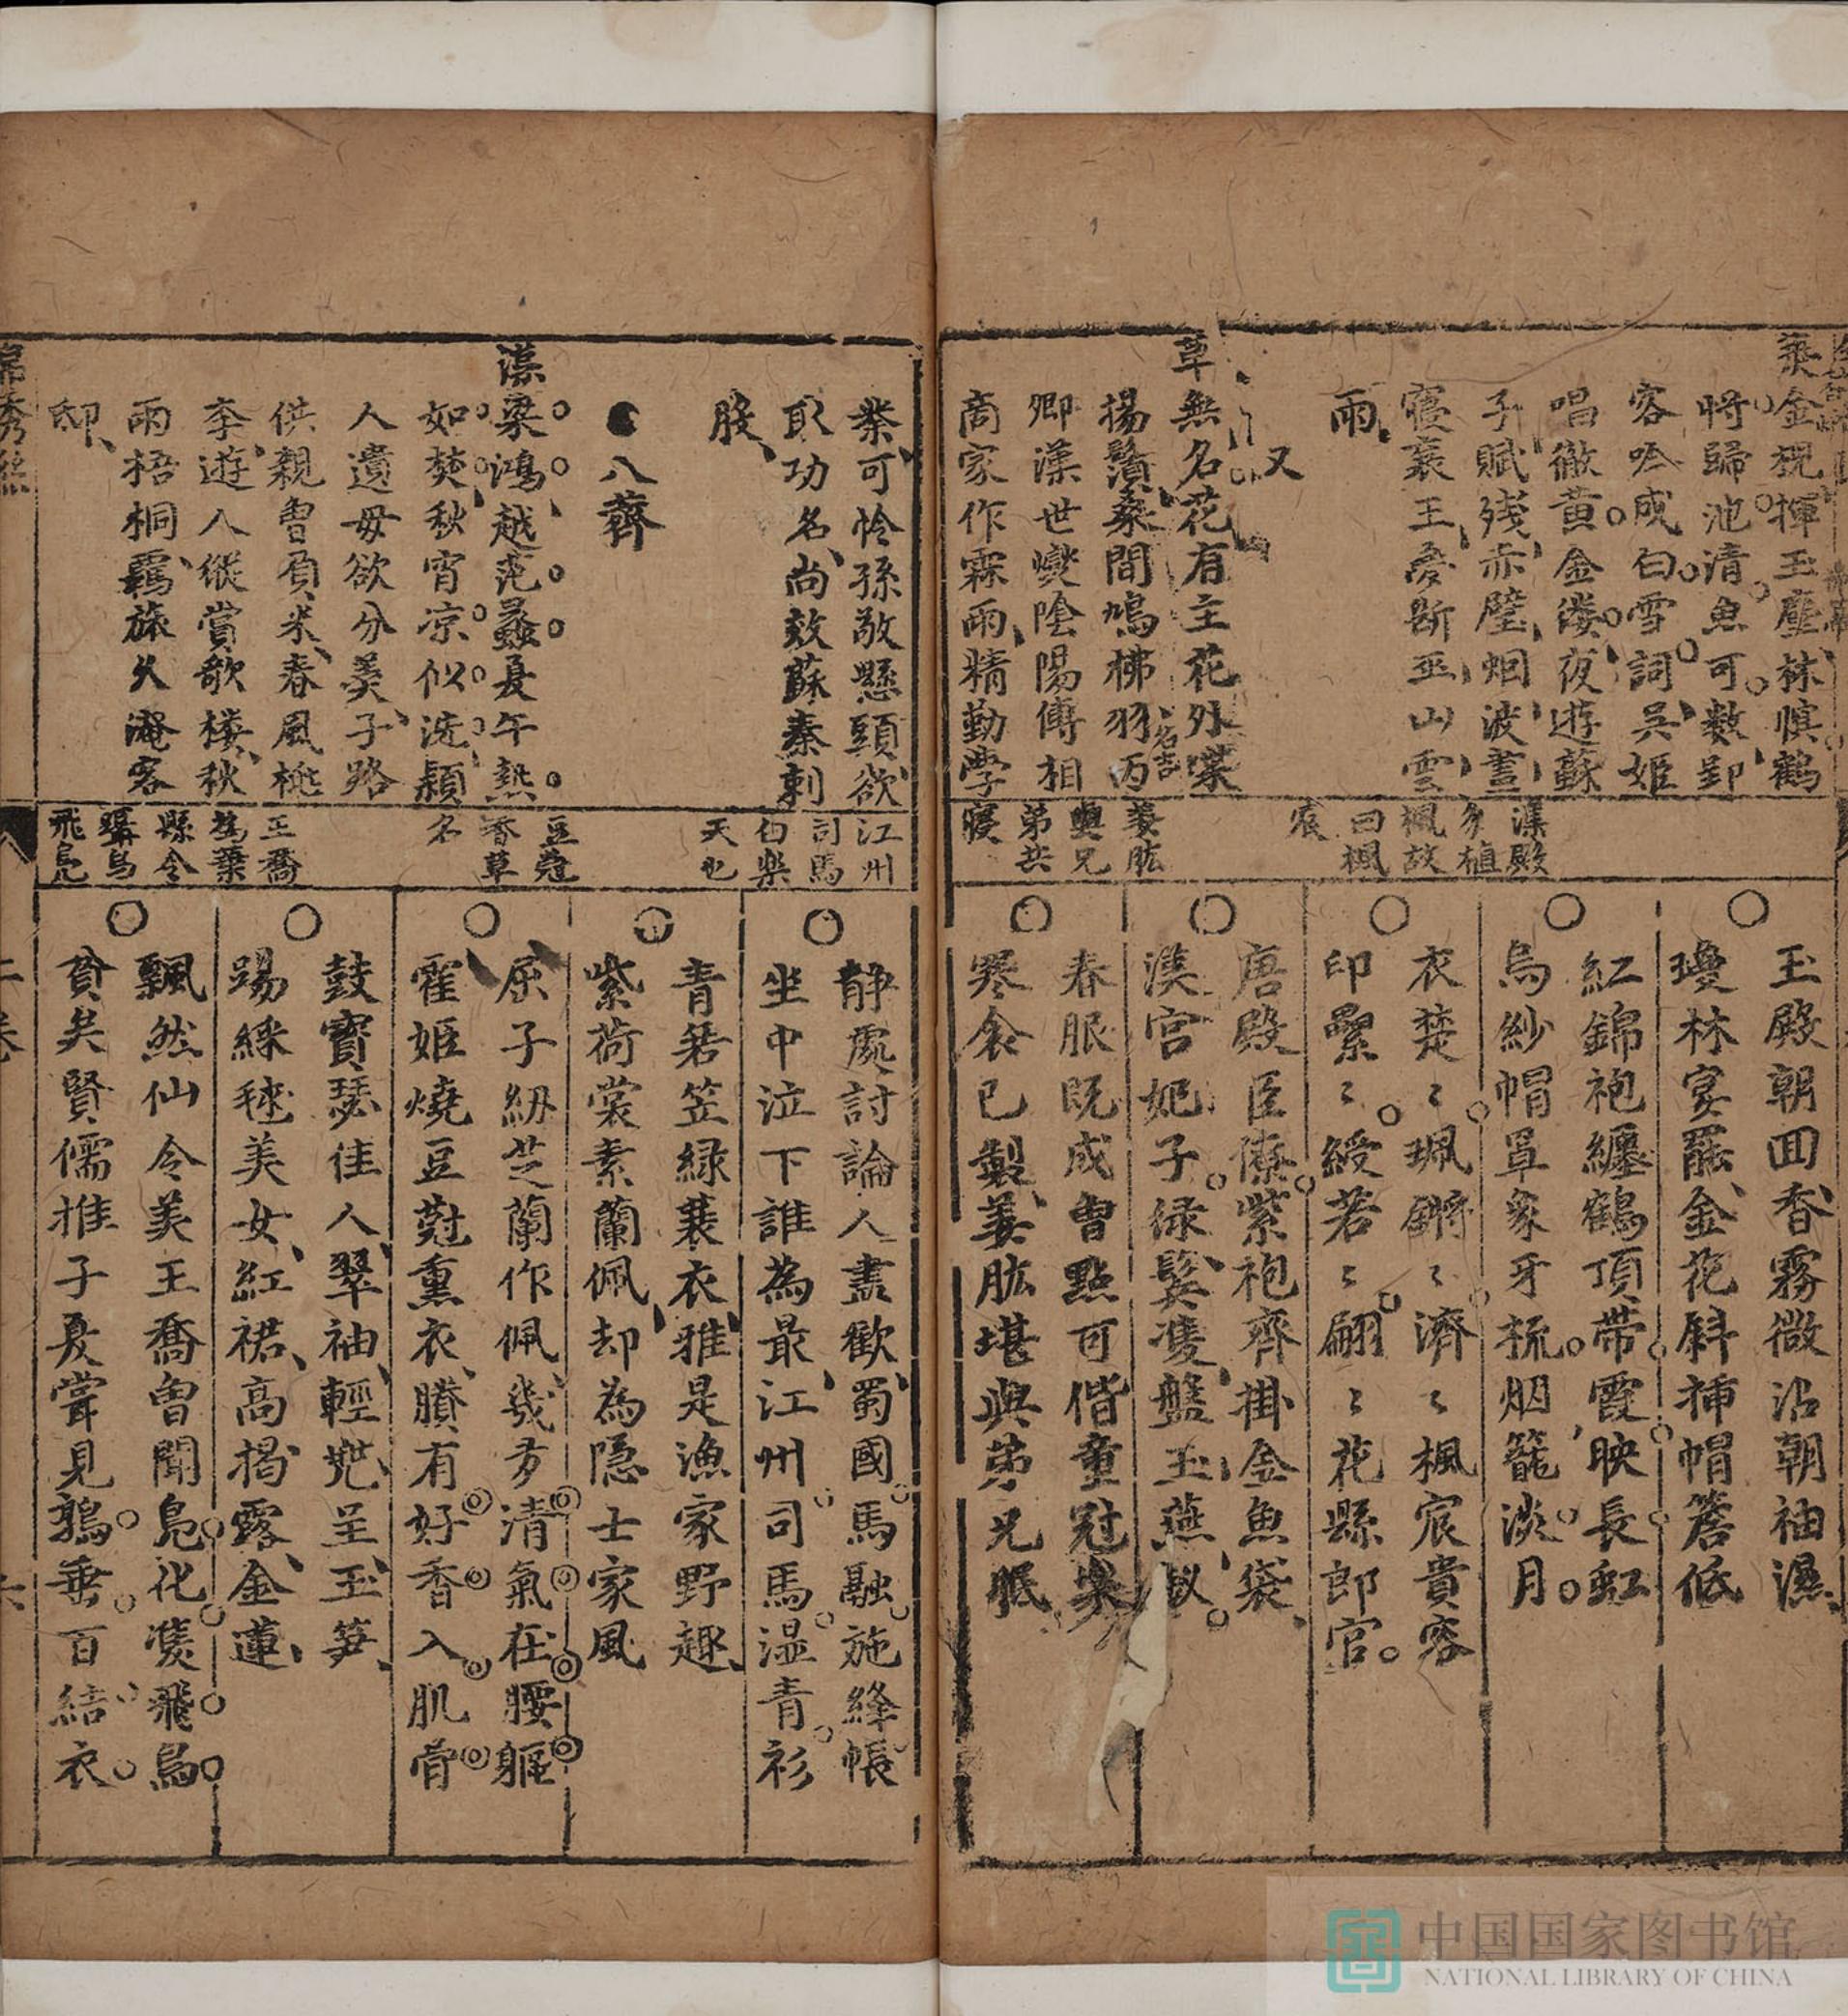 葉金槐揮玉塵林慎鶴
將歸池清魚可數郢
客吟成白雪詞吳姬
唱徹黃金縷夜遊蘇
子賦殘赤壁烟波晝
寢襄王夢斷巫山雲
雨
又
草無名花有主花外葉
揚鬚桑間鳩拂羽丙
名吉
卿漢世燮陰陽傅相
商家作霖雨精勤學
漢殿
多植
楓故
曰楓
宸
姜肱
與兄
弟共
寢
玉殿朝回香霧微沾朝袖濕
瓊林宴罷金花斜揷帽簷低
紅錦袍纏鶴頂帶霞映長虹
烏紗帽罩象牙梳烟籠淡月
衣楚〻珮鏘〻濟〻楓宸貴客
印纍〻綬若〻翩〻花縣郎官
唐殿臣僚紫袍齊掛金魚袋
漢宮妃子緑鬂雙盤玉燕釵
春服旣成曾點可偕童冠樂
寒衾已製姜肱堪與弟兄眠
業可怜孫敬懸頭欲
取功名尚效蘇秦刺
股
●八薺
藻梁鴻越范蠡夏午熱
如焚秋宵凉似洗潁
人遺母欲分羮子路
供親曾負米春風桃
李遊人縱賞歌樓秋
雨梧桐羇旅久淹客
邸
江州
司馬
白樂
天也
豆蔻
香草
名
王喬
爲葉
縣令
雙鳥
飛凫
静處討論人盡歡蜀國馬融施絳帳
坐中泣下誰為最江州司馬湿青衫
青箬笠緑蓑衣雅是漁家野趣
紫荷裳素蘭佩却為隐士家風
屈子紉芝蘭作佩幾多清氣在腰軀
霍姬燒豆蔻熏衣賸有好香入肌骨
鼓寶瑟佳人翠袖輕兠呈玉笋
踢綵毬美女紅裙高揭露金蓮
飄然仙令美王喬曾聞凫化雙飛鳥
貧矣賢儒推子夏甞見鶉垂百結衣
中国国家图书馆
NATIONAL LIBRARY OF CHINA